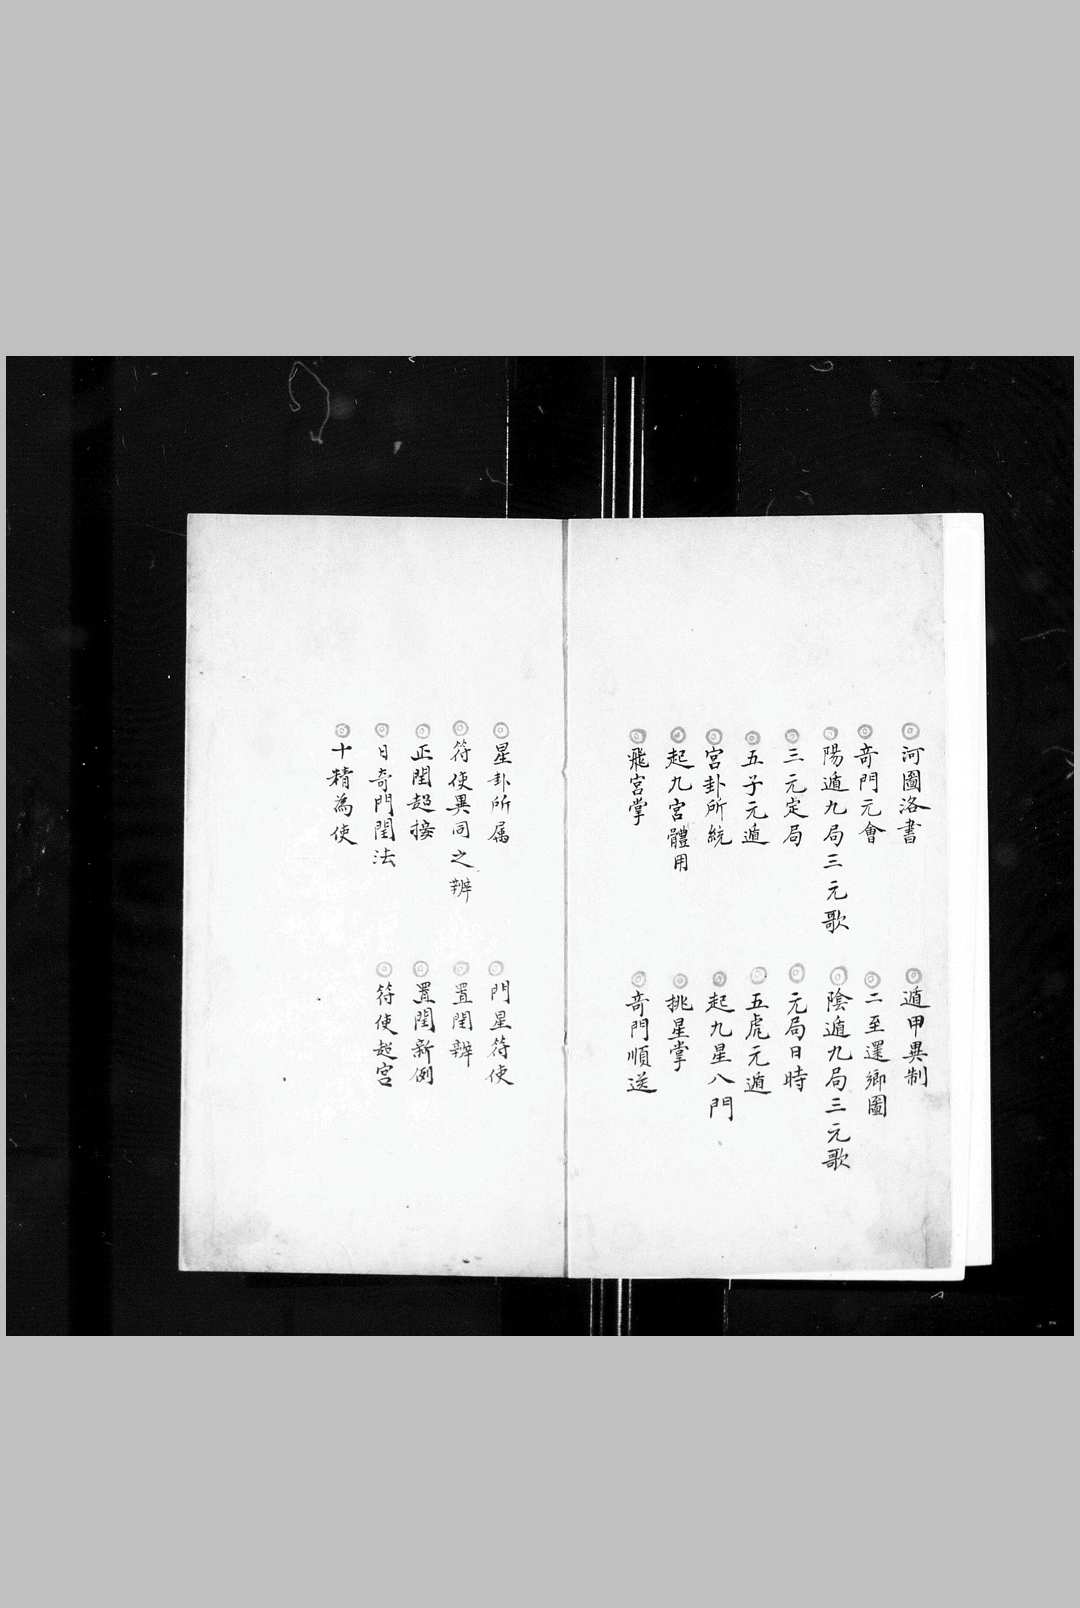 河圖洛書
遁甲異制
奇門元會
二至還鄉圖
陽遁九局三元歌
陰遁九局三元歌
三元定局
元局日時
五子元遁
五虎元遁
宮卦所統
起九星八門
起九宮體用
挑星掌
飛宮掌
奇門順逆
星卦所属
門星符使
符使異同之辨
置閏辨
正閏超接
置閏新例
日奇門閏法
符使起宮
十精為使